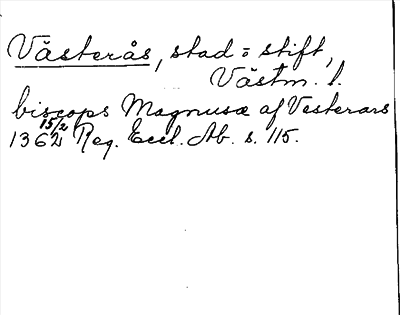 Västerås, stad o stift,
Västm. l.
biscops Magnusæ af Vesterars
1362 15/2 Reg. Eccl. Ab. s. 115.